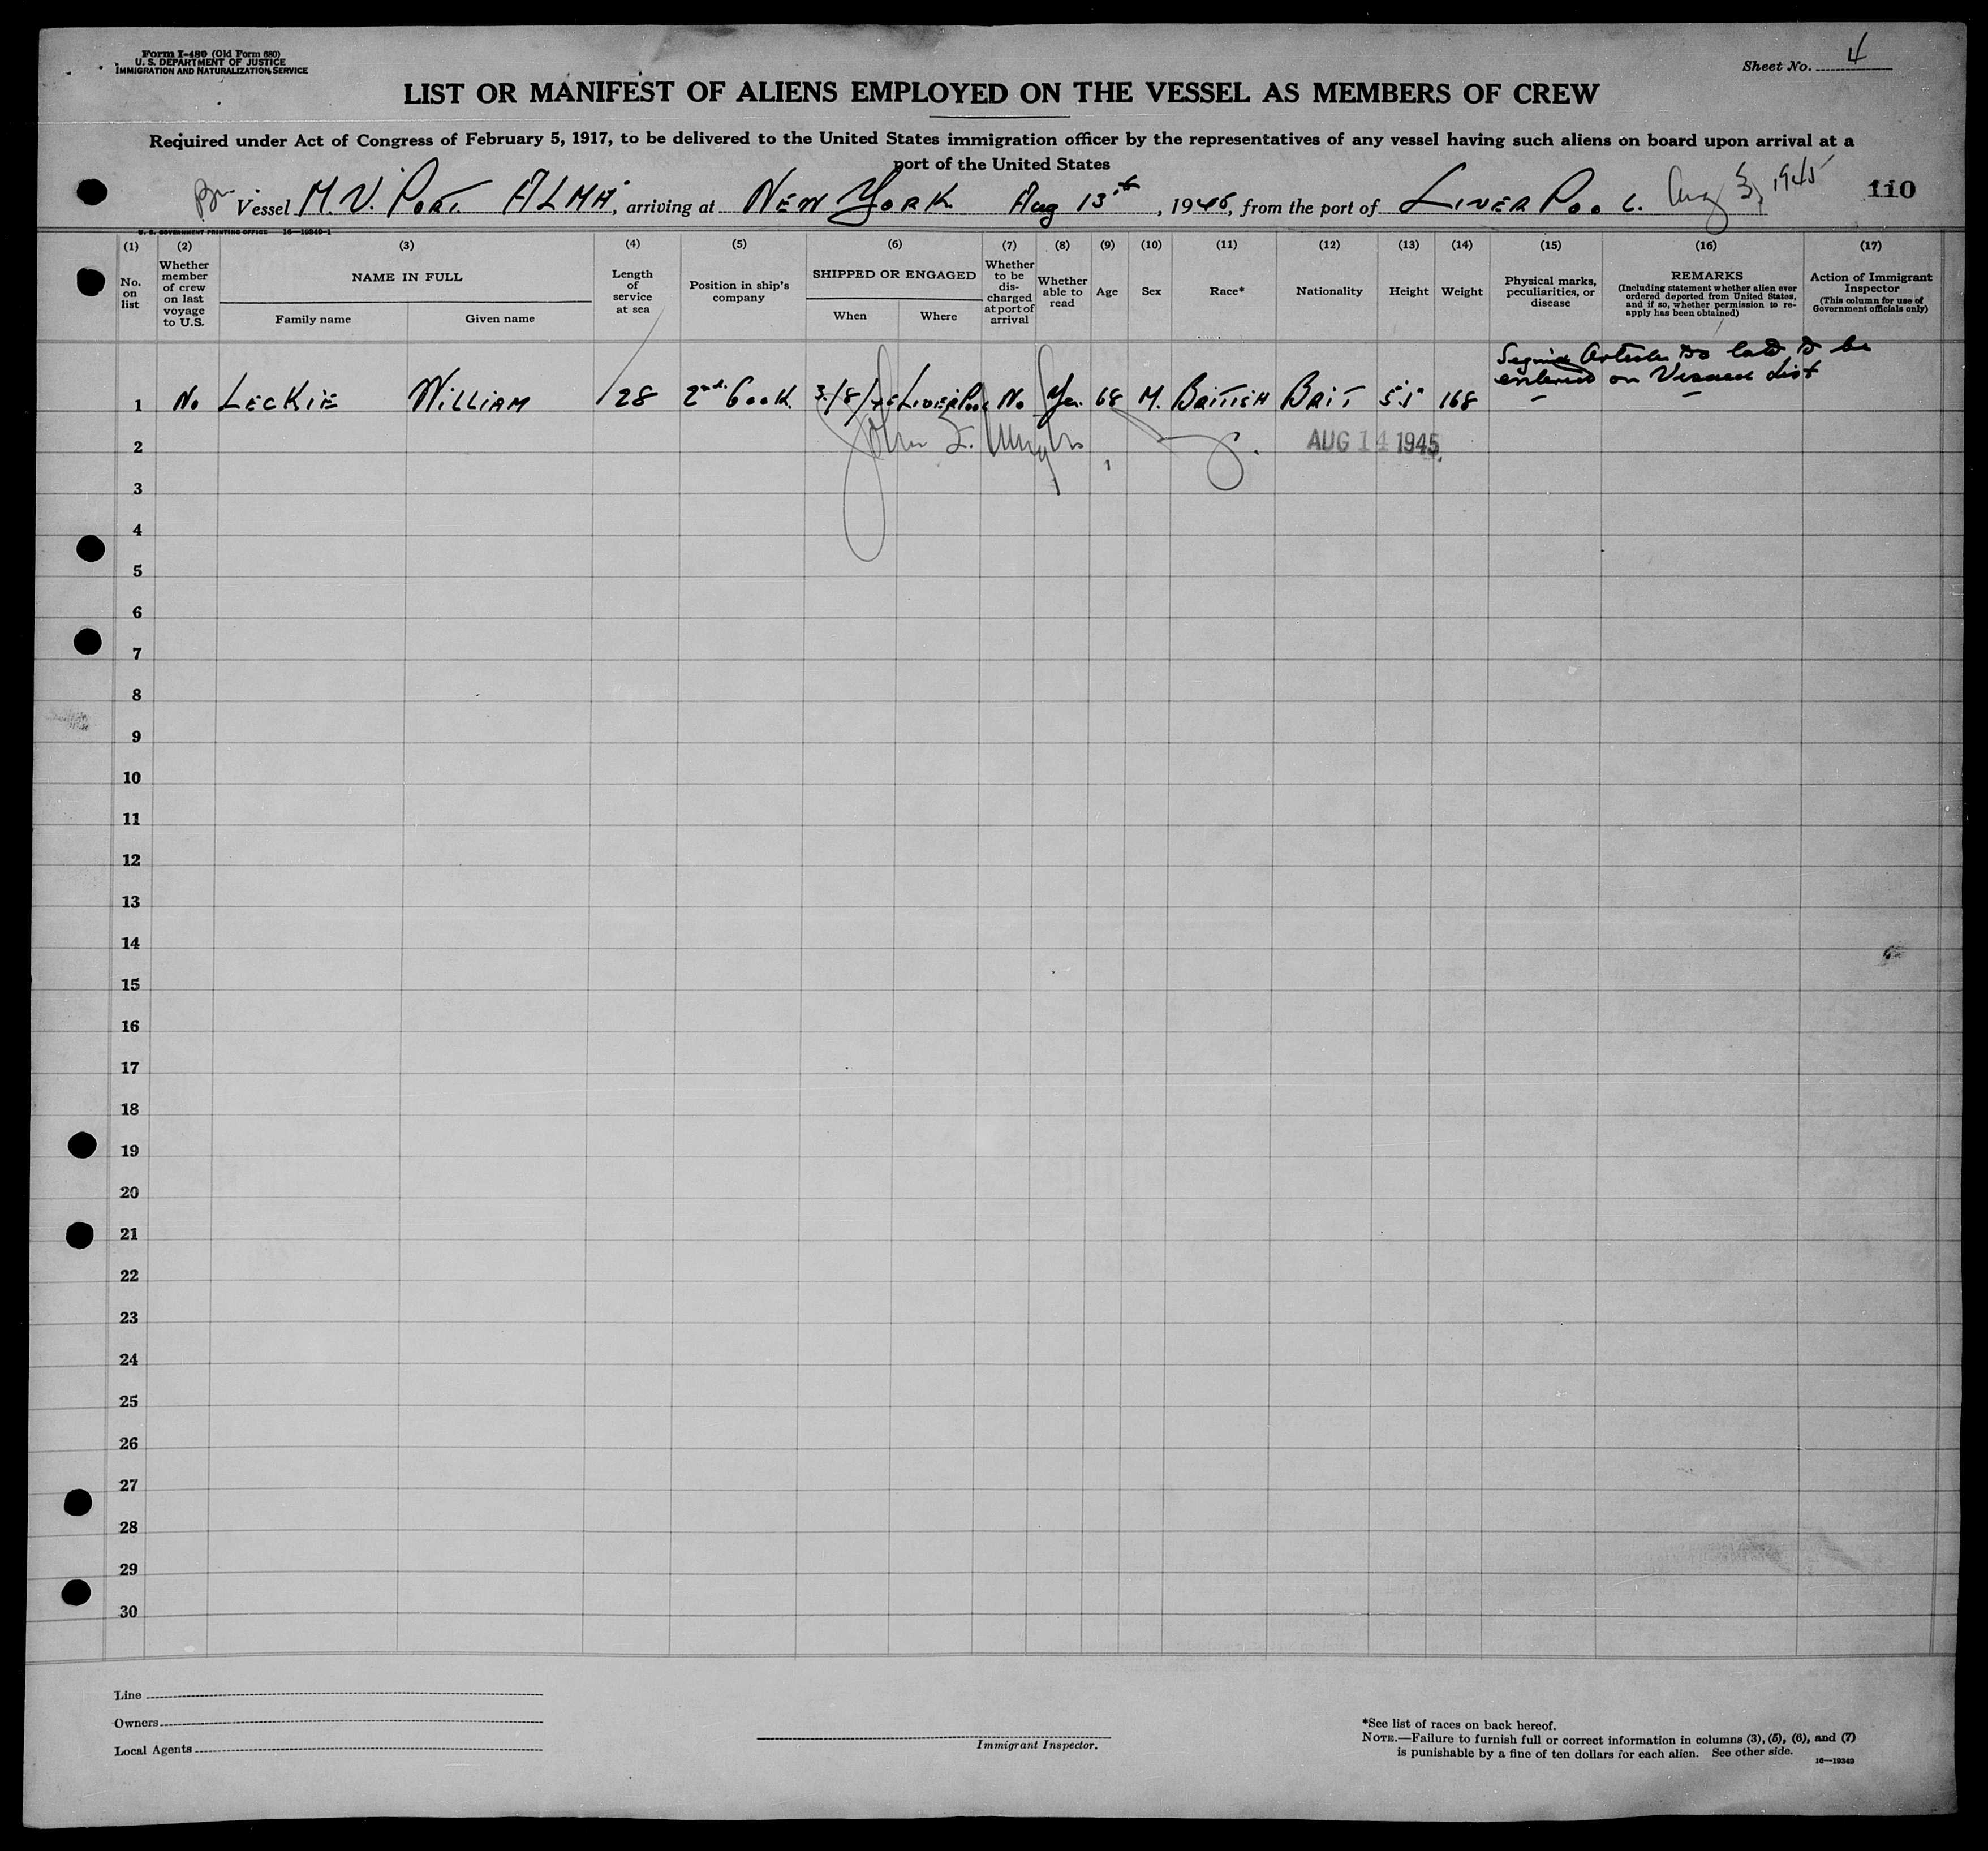 Form I-480 (Old Form 680)
U. S. DEPARTMENT OF JUSTICE
IMMIGRATION AND NATURALIZATION SERVICE
Sheet No. 4
LIST OR MANIFEST OF ALIENS EMPLOYED ON THE VESSEL AS MEMBERS OF CREW
Required under Act of Congress of February 5, 1917, to be delivered to the United States immigration officer by the representatives of any vessel having such aliens on board upon arrival at a
port of the United States
Br Vessel M.V. PORT ALMA, arriving at NEW YORK Aug 13th, 1945, from the port of LIVERPOOL. Aug 3, 1945 110
U. S. GOVERNMENT PRINTING OFFICE 16—19349-1
(1) (2) (3) (4) (5) (6) (7) (8) (9) (10) (11) (12) (13) (14) (15) (16) (17)
No. on list
Whether member of crew on last voyage to U.S.
NAME IN FULL
Family name
Given name
Length of service at sea
Position in ship's company
SHIPPED OR ENGAGED
When
Where
Whether to be discharged at port of arrival
Whether able to read
Age
Sex
Race*
Nationality
Height
Weight
Physical marks, peculiarities, or disease
REMARKS
(Including statement whether alien ever ordered deported from United States, and if so, whether permission to reapply has been obtained)
Action of Immigrant Inspector
(This column for use of Government officials only)
Signed Articles too late to be
entered on Vessel List
1 No LECKIE WILLIAM 28 2nd Cook. 3/8/45 LIVERPOOL No Yes 68 M. BRITISH BRIT 5'5" 168
2 John L. AUG 14 1945
3
4
5
6
7
8
9
10
11
12
13
14
15
16
17
18
19
20
21
22
23
24
25
26
27
28
29
30
Line
Owners
Local Agents
Immigrant Inspector.
*See list of races on back hereof.
NOTE.—Failure to furnish full or correct information in columns (3), (5), (6), and (7)
is punishable by a fine of ten dollars for each alien. See other side.
16—19349